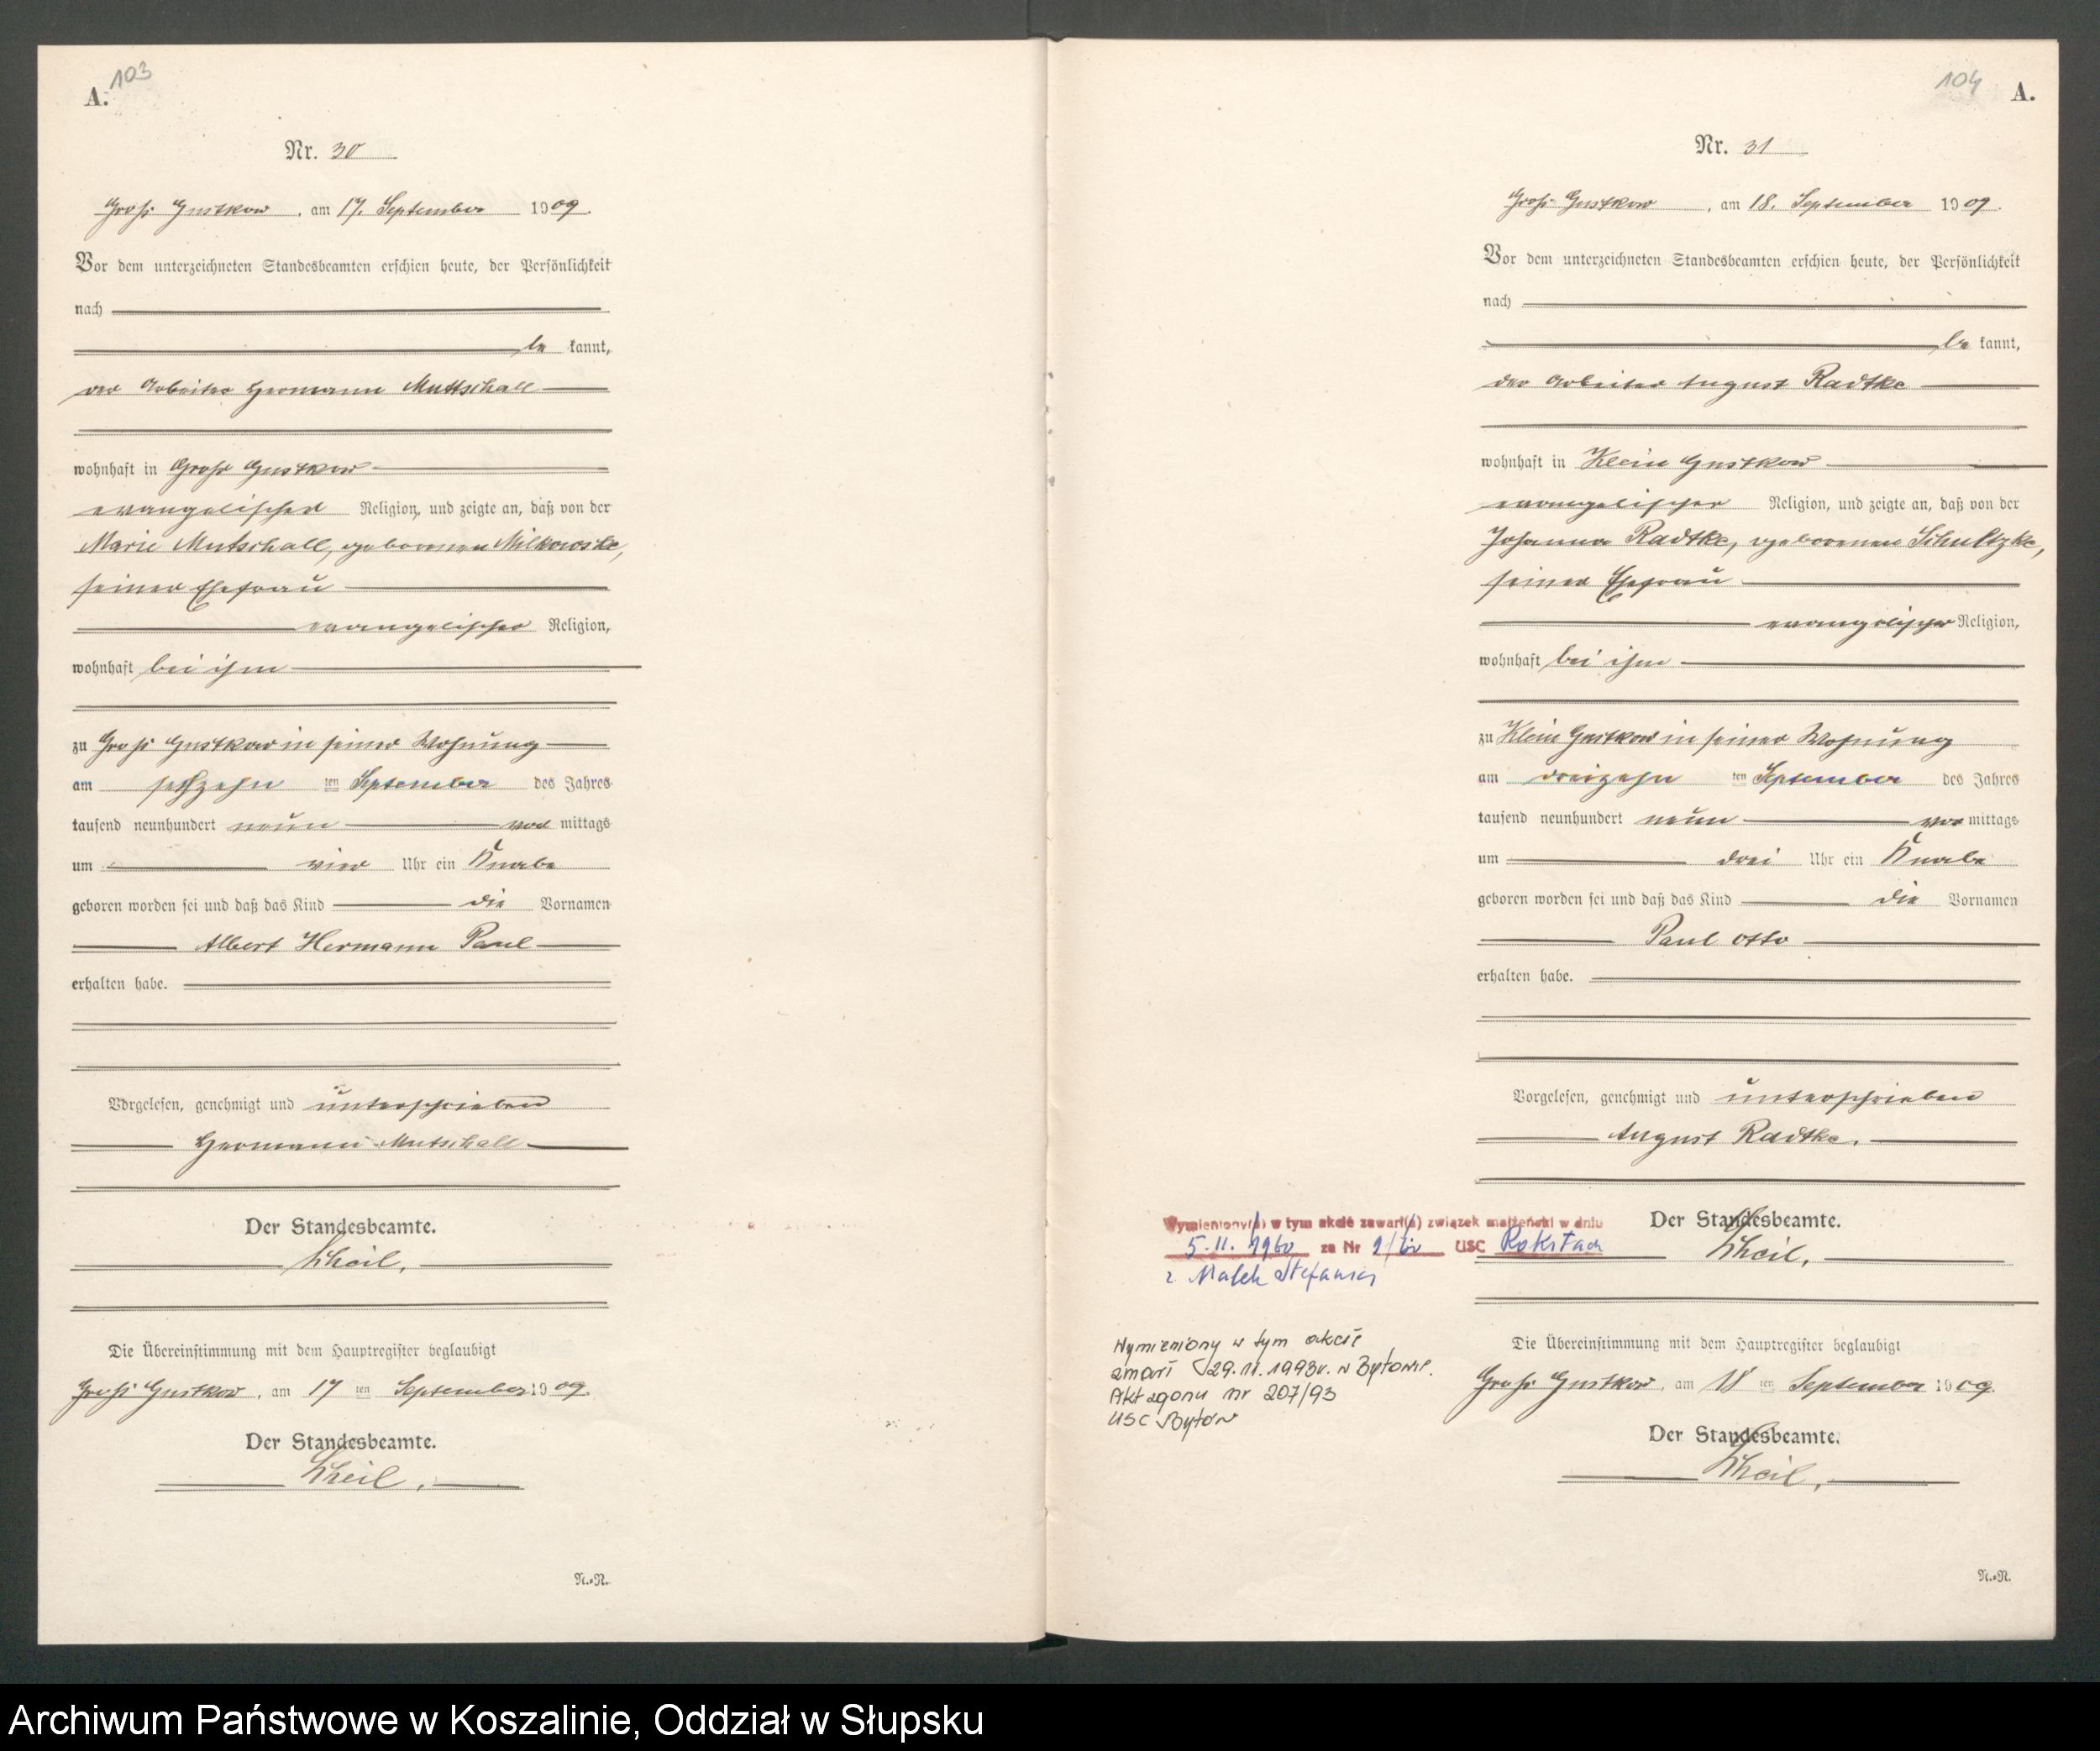 103
A.
Nr. 30
Groß Gustkow, am 17. September 1909.
Vor dem unterzeichneten Standesbeamten erschien heute, der Persönlichkeit
nach
be kannt,
der Arbeiter Hermann Muttschall
wohnhaft in Groß Gustkow
evangelischer Religion, und zeigte an, daß von der
Marie Mutschall, geborenen Milkowske,
seiner Ehefrau
evangelischer Religion,
wohnhaft bei ihm
zu Groß Gustkow in seiner Wohnung
am sechzehn ten September des Jahres
tausend neunhundert neun vor mittags
um vier Uhr ein Knabe
geboren worden sei und daß das Kind die Vornamen
Albert Hermann Paul
erhalten habe.
Vorgelesen, genehmigt und unterschrieben
Hermann Mutschall
Der Standesbeamte.
Theil.
Die Übereinstimmung mit dem Hauptregister beglaubigt
Groß Gustkow, am 17 ten September 1909.
Der Standesbeamte.
Theil.
N.-N.
104
A.
Nr. 31
Groß Gustkow, am 18. September 1909.
Vor dem unterzeichneten Standesbeamten erschien heute, der Persönlichkeit
nach
be kannt,
der Arbeiter August Radtke
wohnhaft in Klein Gustkow
evangelischer Religion, und zeigte an, daß von der
Johanna Radtke, geborenen Schultzke,
seiner Ehefrau
evangelischer Religion,
wohnhaft bei ihm
zu Klein Gustkow in seiner Wohnung
am dreizehn ten September des Jahres
tausend neunhundert neun vor mittags
um drei Uhr ein Knabe
geboren worden sei und daß das Kind die Vornamen
Paul Otto
erhalten habe.
Vorgelesen, genehmigt und unterschrieben
August Radtke.
Wymieniony(a) w tym akcie zawarł(a) związek małżeński w dniu
5. II. 1960 za Nr 2/60 USC
z Małek Stefanią
Der Standesbeamte.
Theil.
Wymieniony w tym akcie
zmarł 29.11.1993r. w Bytowie.
Akt zgonu nr 207/93
USC Bytów
Die Übereinstimmung mit dem Hauptregister beglaubigt
Groß Gustkow, am 18 ten September 1909.
Der Standesbeamte.
Theil.
N.-N.
Archiwum Państwowe w Koszalinie, Oddział w Słupsku